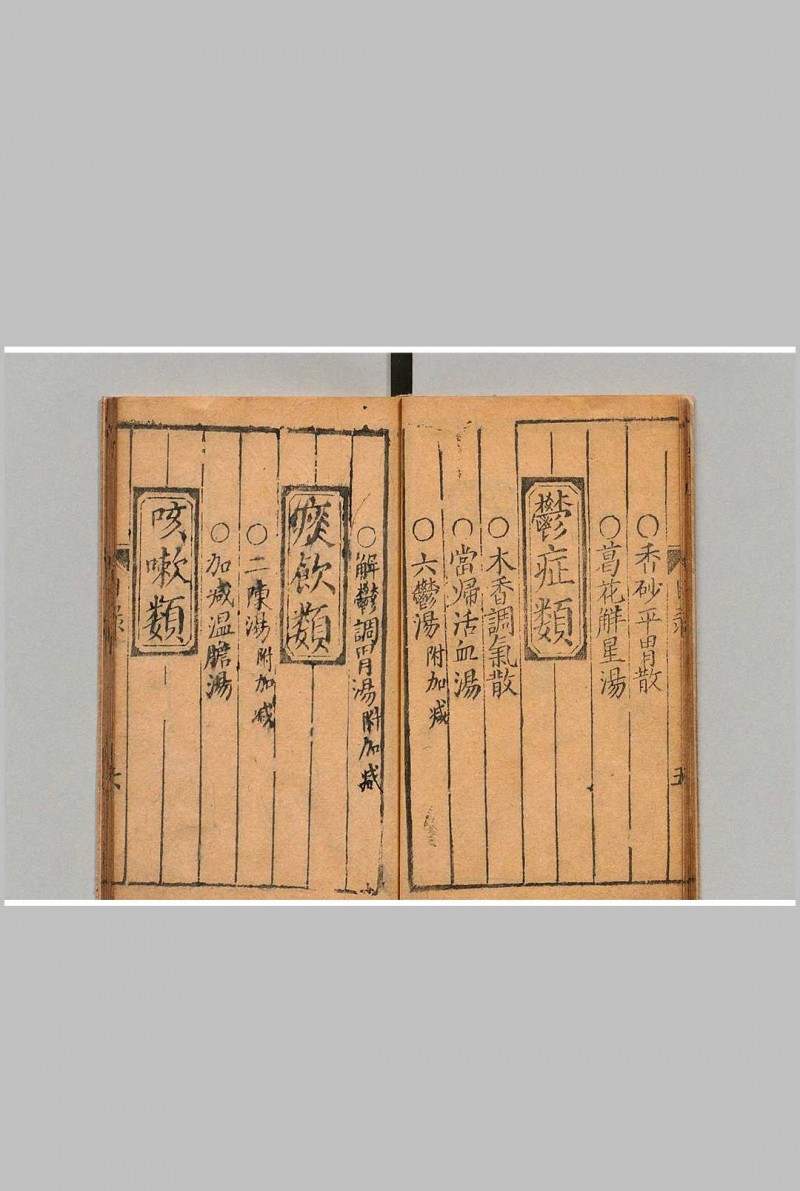 ○香砂平胃散
○葛花解星湯
鬱症類
○木香調氣散
○當歸活血湯
○六鬱湯附加减
○解鬱調胃湯附加减
痰飲類
○二陳湯附加减
○加减温膽湯
咳嗽類
目錄
五
目錄
六